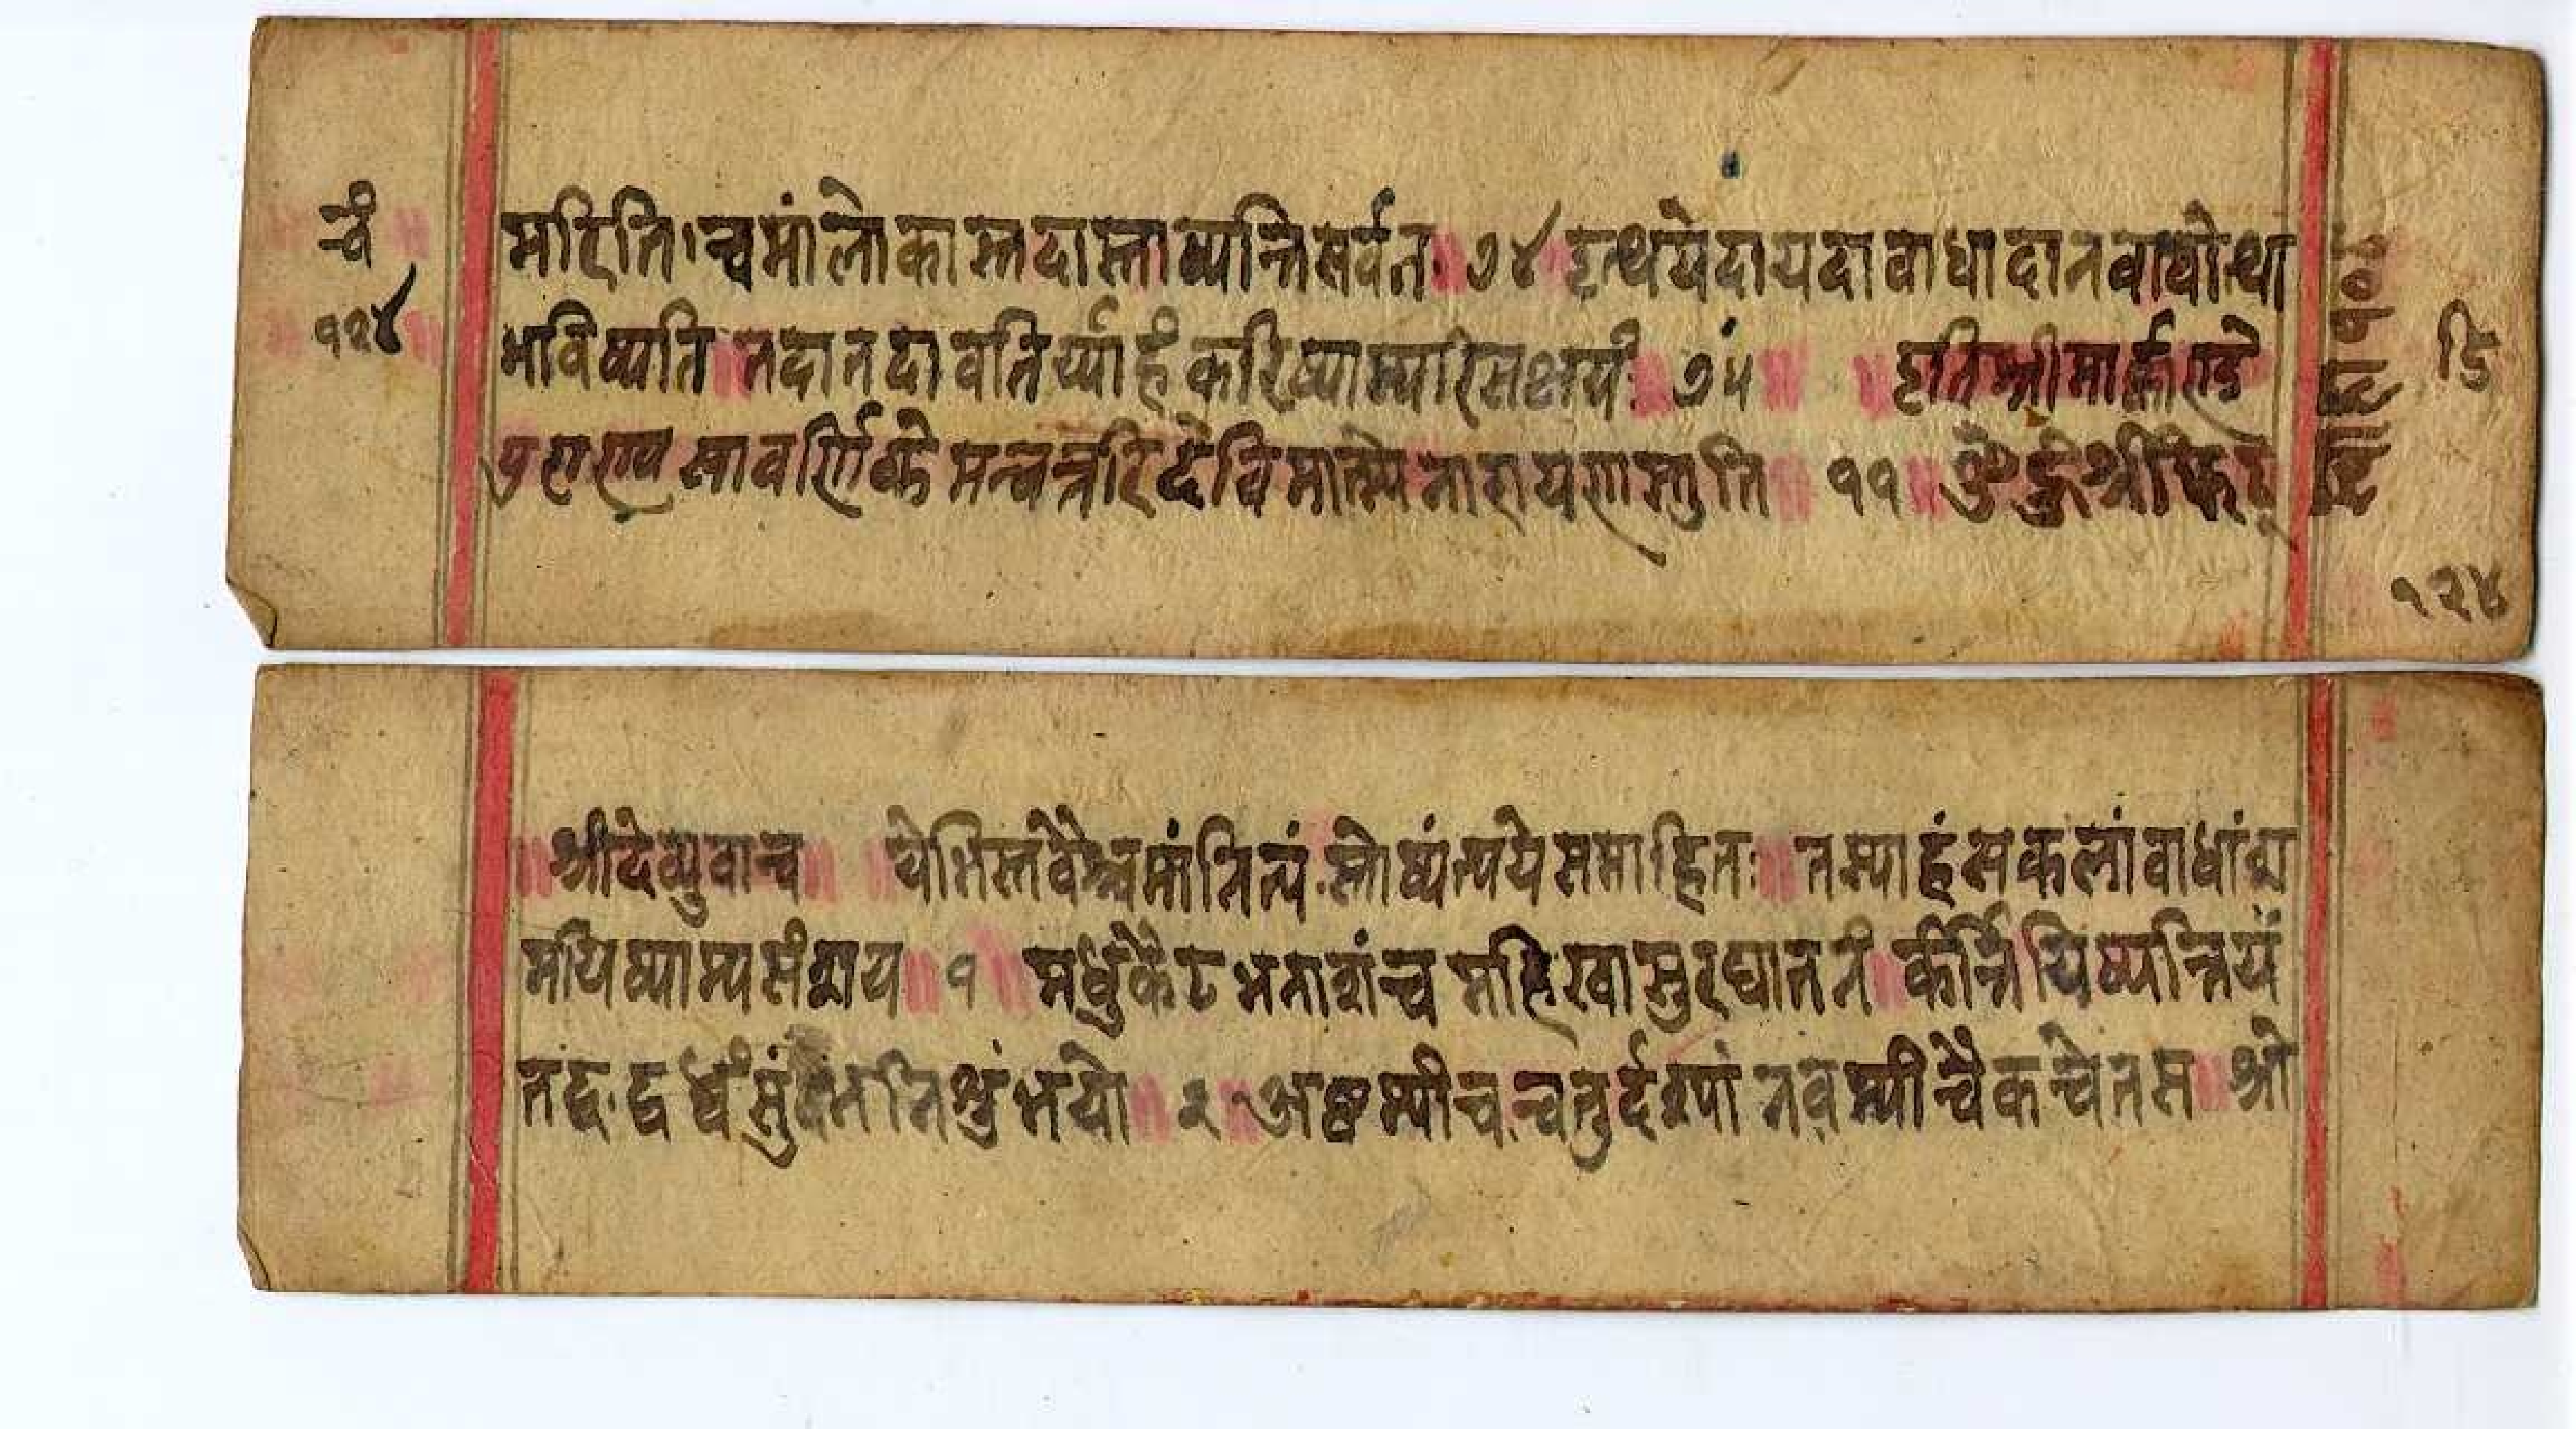 चं
१२४
मरिति।च्चमांलोकास्तदास्ताव्यन्तिसर्वतः॥७४॥इत्थंयेदायदावाधादानवाथोत्था
भविष्यति॥तदातदावतिर्य्याहंकरिष्याम्यरिसक्षयं॥७५॥ ॥इतिश्रीमार्क्कण्डे
सावर्णिके मन्वन्तरिदेविमात्म्ये नारायणास्तुति॥११॥
डि
१२४
॥श्रीदेव्युवाच॥ ॥येभिस्तवैश्चमांनित्यं स्तोष्यंत्यये समाहितः॥तस्याहंसकलांवाधांश
मयिष्याम्यसंशय॥१॥मधुकैटभनाशंच महिखासुरघातनं॥कीर्त्तयिष्यन्तिये
तद्व.द्वधं सुंभनिशुंभयो॥२॥अष्टम्यीच चतुर्दश्यां नवम्यीचैकचेतस॥श्रो